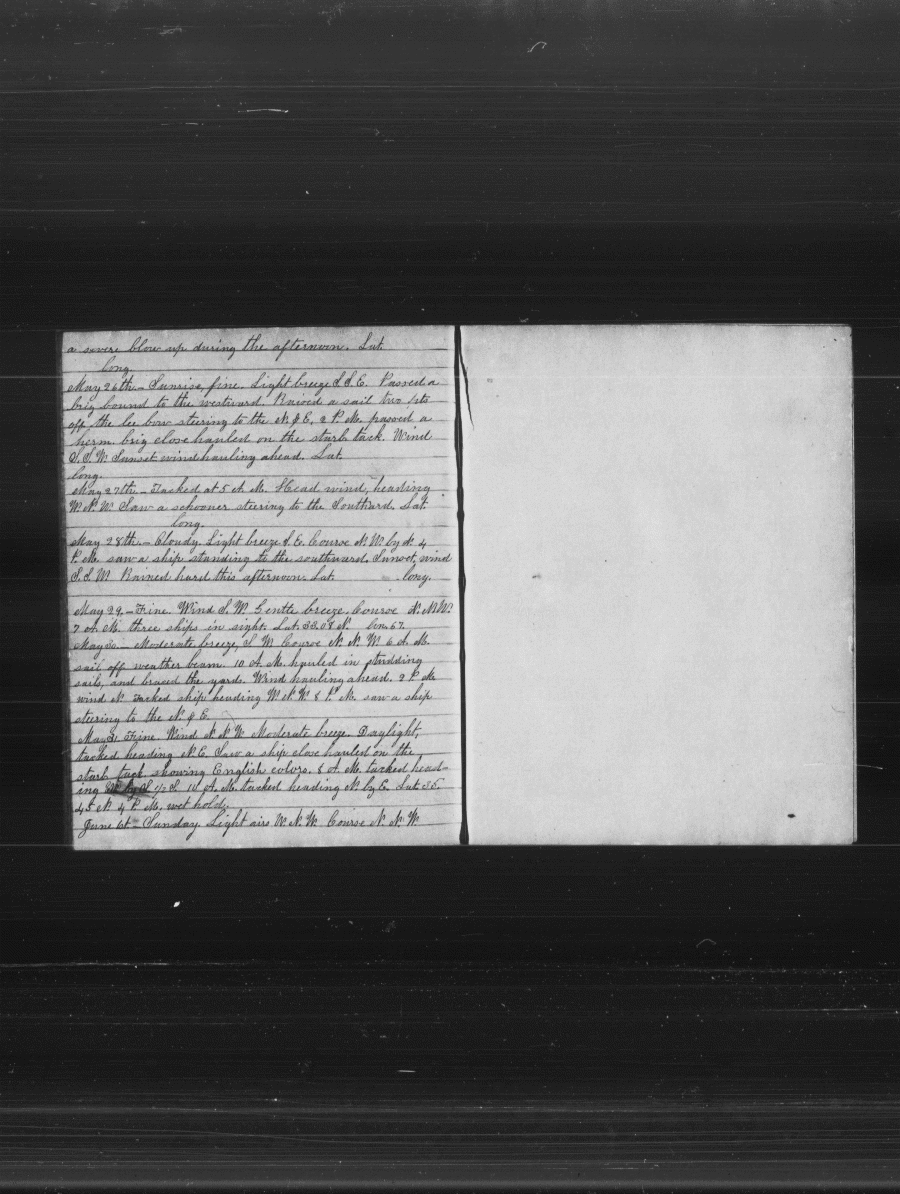 a severe blow up during the afternoon. Lat.
long.
May 26th. - Sunrise, fine. Light breeze S.S.E. Passed a
brig bound to the westward. Raised a sail two pts
off the lee bow steering to the N. & E. 2 P. M. passed a
herm. brig close hauled on the starb. tack. Wind
S. S. W. Sunset wind hauling ahead. Lat.
long.
May 27th. - Tacked at 5 A. M. Head wind, heading
W. N. W. Saw a schooner steering to the Southard. Lat.
long.
May 28th. - Cloudy. Light breeze S. E. Course N. W. by N. 4
P. M. saw a ship standing to the southward. Sunset, wind
S. S. W. Rained hard this afternoon. Lat. long.
May 29. - Fine. Wind S. W. Gentle breeze. Course N. N. W.
7 A. M. three ships in sight. Lat. 33.08 N. Lon. 67.
May 30. - Moderate breeze, S. W. Course N. N. W. 6 A. M.
sail off weather beam. 10 A. M. hauled in studding
sails, and braced the yards. Wind hauling ahead. 2 P. M.
wind N. Tacked ship heading W. N. W. 8 P. M. saw a ship
steering to the N. & E.
May 31. Fine. Wind N. N. W. Moderate breeze. Daylight,
tacked heading N. E. Saw a ship close hauled on the
starb. tack showing English colors. 8 A. M. tacked head-
ing W. by S. 1/2 S. 10 A. M. tacked heading N. by E. Lat. 35.
45 N. 4 P. M. wet hold.
June 1st - Sunday. Light airs W. N. W. Course N. N. W.